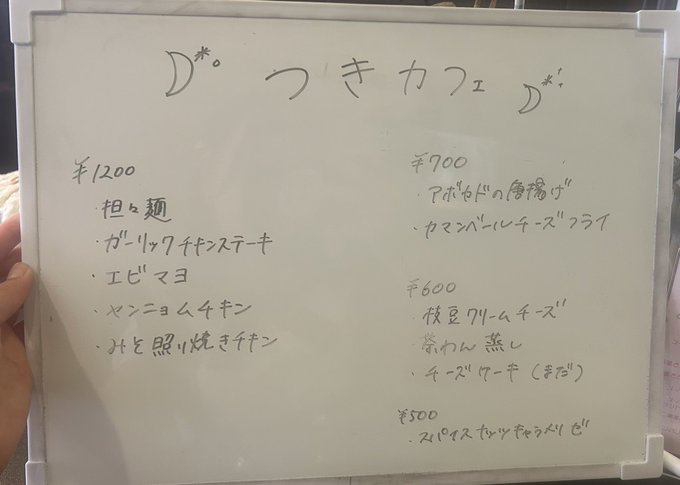 つきカフェ
¥1200
・担々麺
・ガーリックチキンステーキ
・エビマヨ
・ヤンニョムチキン
・みそ照り焼きチキン
¥700
・アボカドの唐揚げ
・カマンベールチーズフライ
¥600
・枝豆クリームチーズ
・茶わん蒸し
・チーズケーキ(まだ)
¥500
・スパイスナッツキャラメリゼ